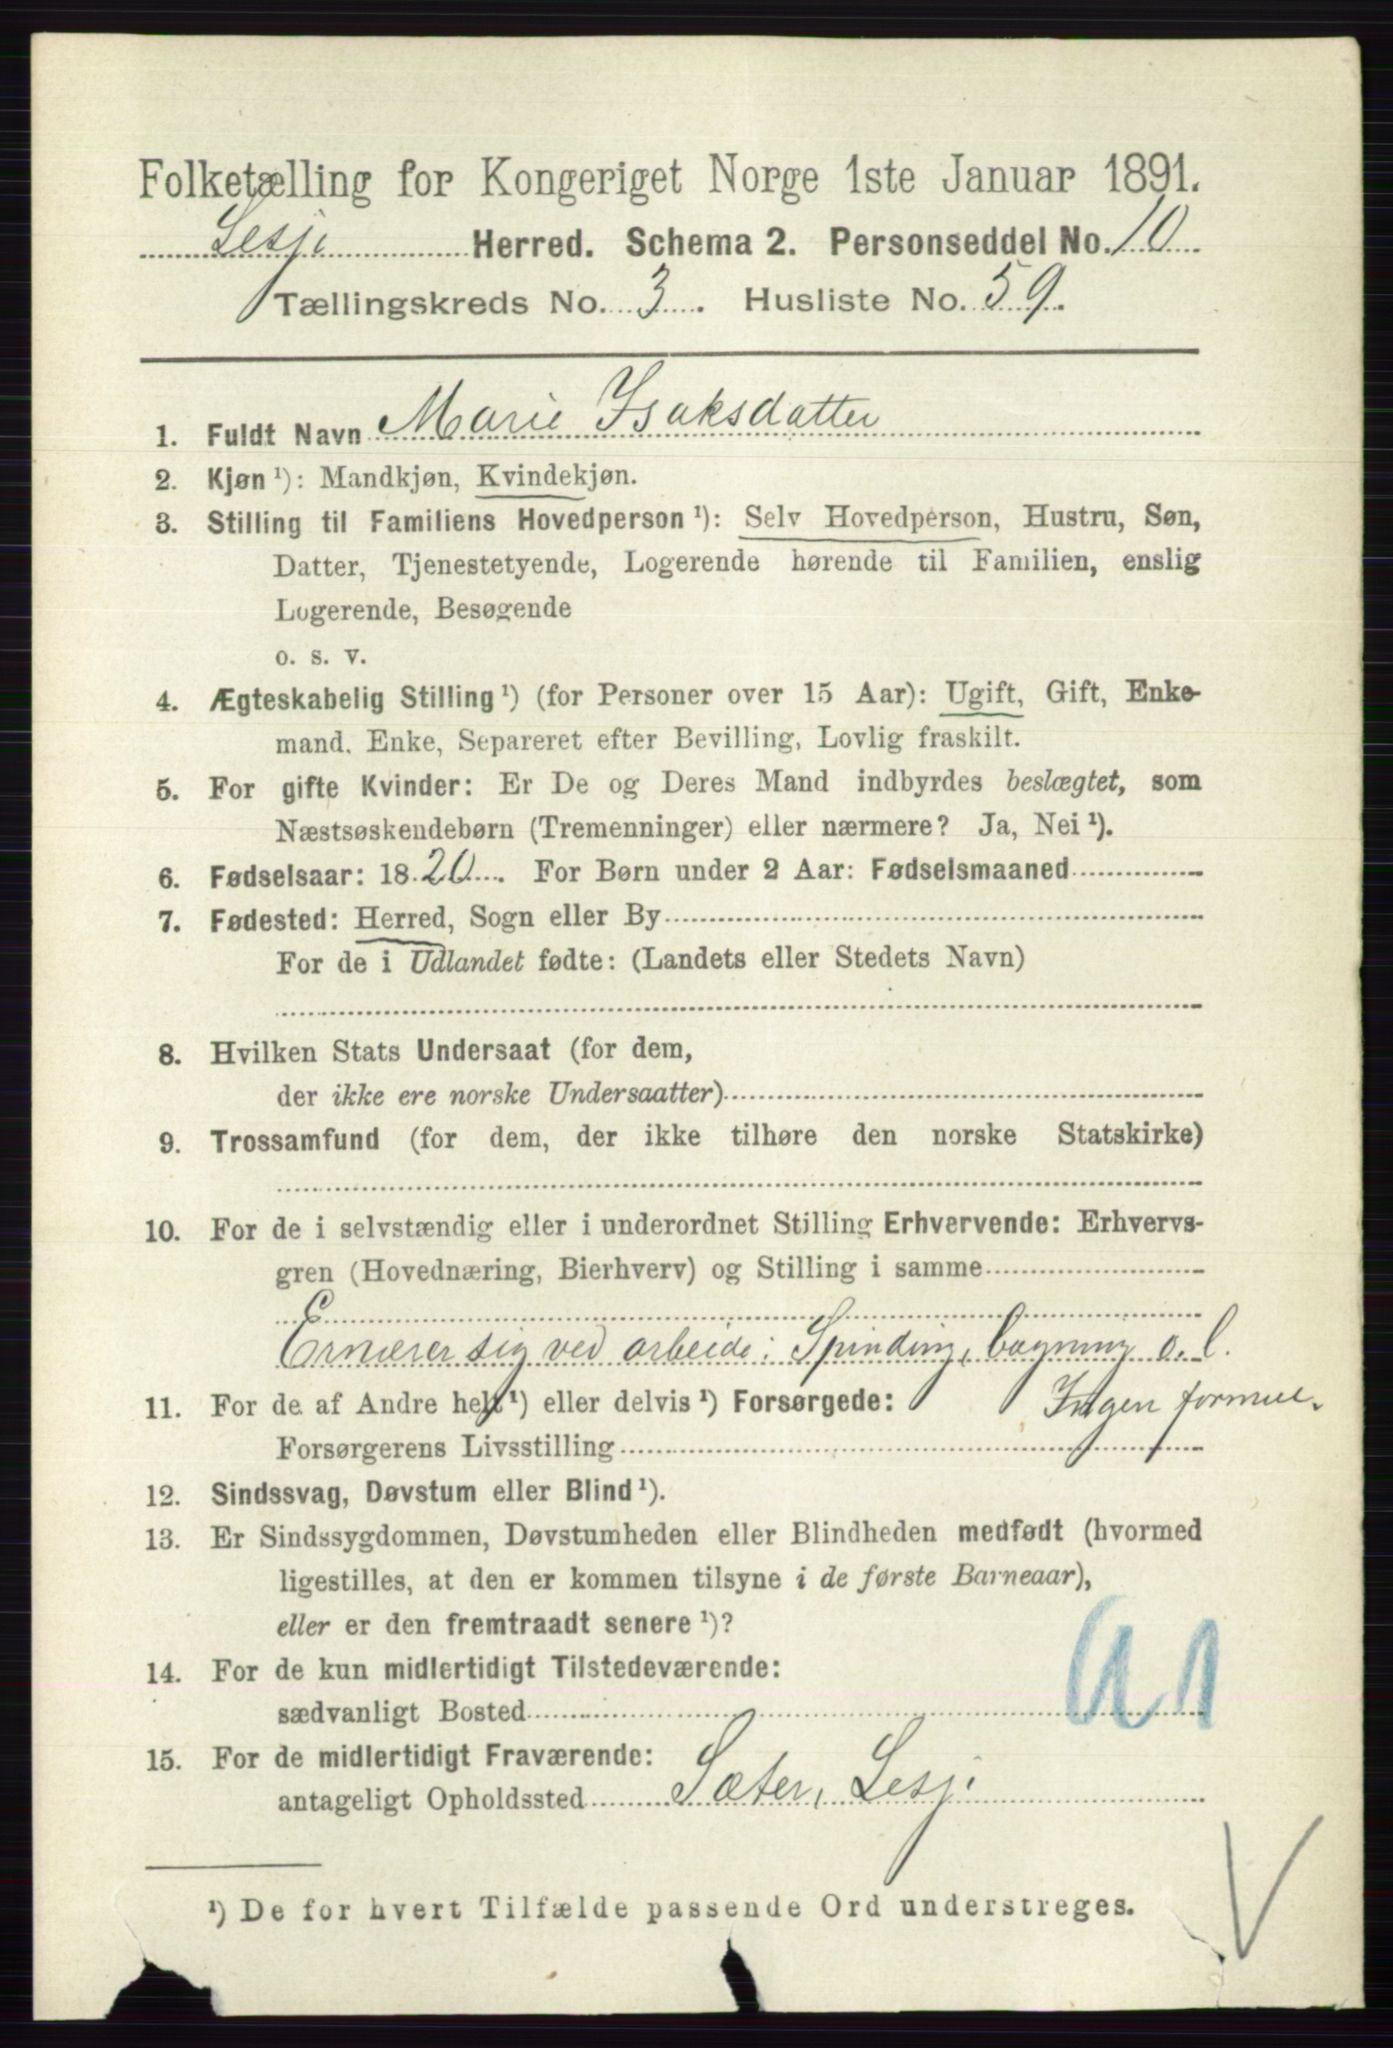 Folketælling for Kongeriget Norge 1ste Januar 1891.
Lesje Herred. Schema 2. Personseddel No. 10
Tællingskreds No. 3. Husliste No. 59.
1. Fuldt Navn Marie Isaksdatter
2. Kjøn ¹): Mandkjøn, Kvindekjøn.
3. Stilling til Familiens Hovedperson ¹): Selv Hovedperson, Hustru, Søn,
Datter, Tjenestetyende, Logerende hørende til Familien, enslig
Logerende, Besøgende
o. s. v.
4. Ægteskabelig Stilling ¹) (for Personer over 15 Aar): Ugift, Gift, Enke-
mand, Enke, Separeret efter Bevilling, Lovlig fraskilt.
5. For gifte Kvinder: Er De og Deres Mand indbyrdes beslægtet, som
Næstsøskendebørn (Tremenninger) eller nærmere? Ja, Nei ¹).
6. Fødselsaar: 1820. For Børn under 2 Aar: Fødselsmaaned
7. Fødested: Herred, Sogn eller By
For de i Udlandet fødte: (Landets eller Stedets Navn)
8. Hvilken Stats Undersaat (for dem,
der ikke ere norske Undersaatter)
9. Trossamfund (for dem, der ikke tilhøre den norske Statskirke)
10. For de i selvstændig eller i underordnet Stilling Erhvervende: Erhvervs-
gren (Hovednæring, Bierhverv) og Stilling i samme
Ernærer sig ved arbeide: Spinding, bagning o. l.
11. For de af Andre helt ¹) eller delvis ¹) Forsørgede: Ingen formue.
Forsørgerens Livsstilling
12. Sindssvag, Døvstum eller Blind ¹).
13. Er Sindssygdommen, Døvstumheden eller Blindheden medfødt (hvormed
ligestilles, at den er kommen tilsyne i de første Barneaar),
eller er den fremtraadt senere ¹)?
14. For de kun midlertidigt Tilstedeværende:
sædvanligt Bosted
15. For de midlertidigt Fraværende:
antageligt Opholdssted Sæter, Lesje
¹) De for hvert Tilfælde passende Ord understreges.